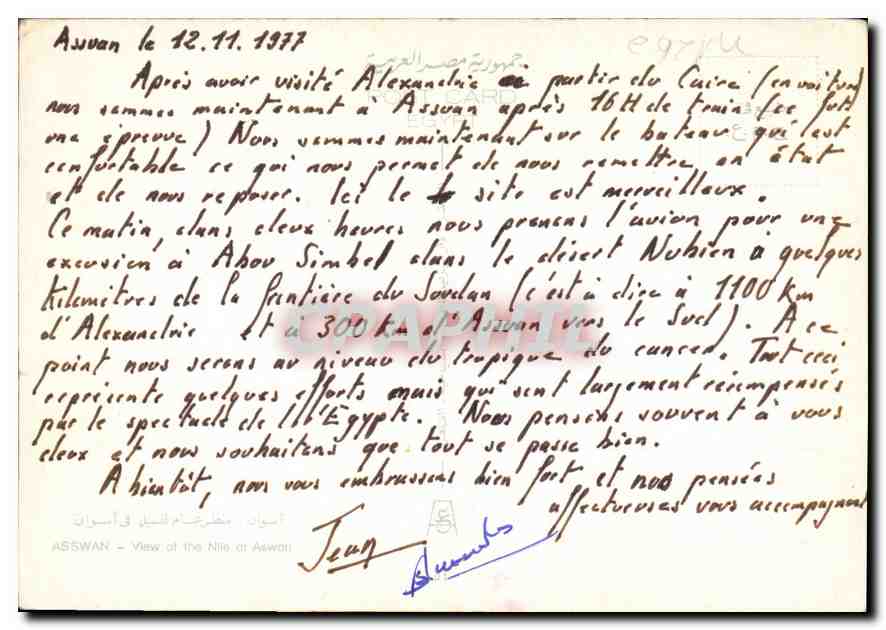 Assuan le 12.11.1977
egypte
جمهورية مصر العربية
POST CARD
EGYPT
Après avoir visité Alexandrie à partir du Caire (en voiture)
nous sommes maintenant à Assuan après 16H de train (ce fut
une épreuve) Nous sommes maintenant sur le bateau qui est
confortable ce qui nous permet de nous remettre en état
et de nous reposer. Ici le site est merveilleux.
Ce matin, dans deux heures nous prenons l'avion pour une
excursion à Abou Simbel dans le désert Nubien à quelques
kilomètres de la frontière du Soudan (c'est à dire à 1100 km
d'Alexandrie et à 300 km d'Assuan vers le Sud). A ce
point nous serons au niveau du tropique du cancer. Tout ceci
représente quelques efforts mais qui sont largement récompensés
par le spectacle de l'Egypte. Nous pensons souvent à vous
deux et nous souhaitons que tout se passe bien.
A bientôt, nous vous embrassons bien fort et nos pensées
affectueuses vous accompagnent
Jean
CPAPHIL
أسوان - منظر عام للنيل فى أسوان
ASSWAN – View of the Nile at Aswan